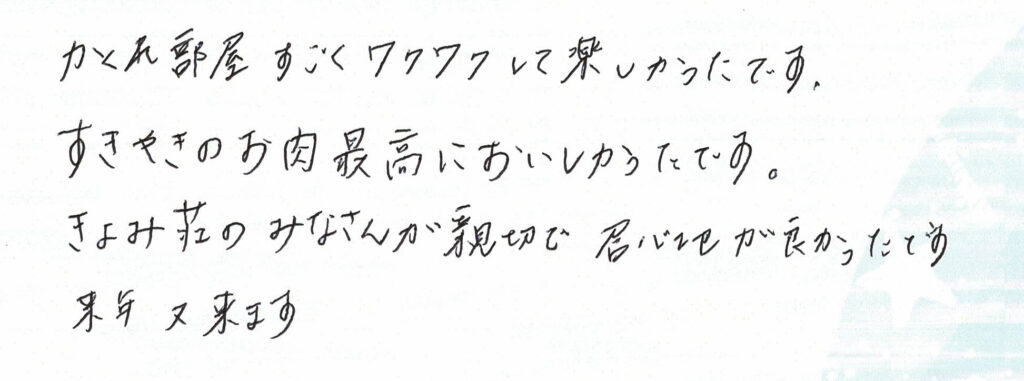 かくれ部屋 すごくワクワクして楽しかったです.
すきやきのお肉最高においしかったです。
きよみ荘のみなさんが親切で居心地が良かったです
来年又来ます